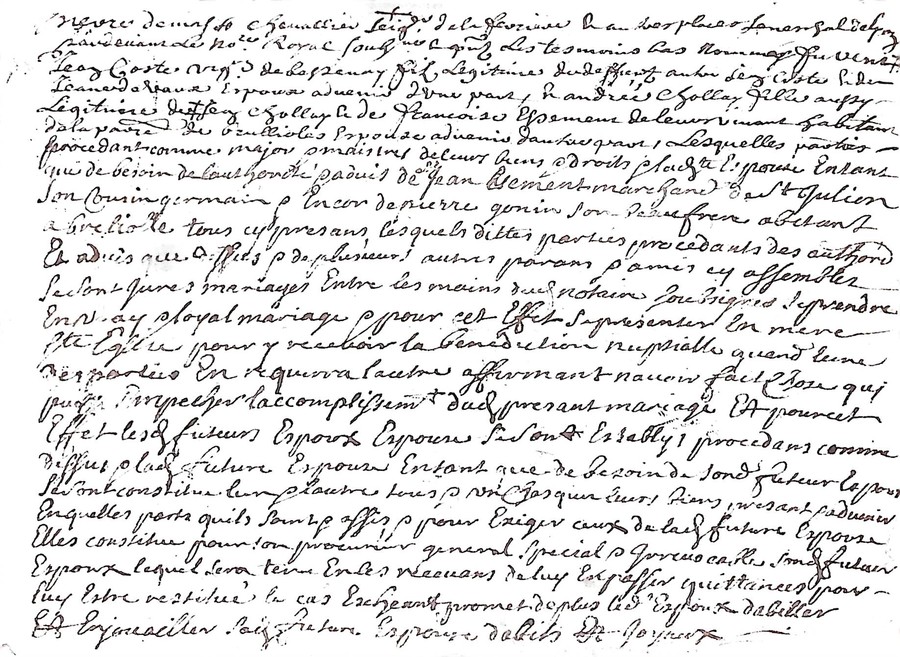 messire chevallier seigr de la
pardevant le nore Royal soubsigné & les tesmoins bas nommes fu
Jean Coste fils Legitime du deffunt autre Jean Coste & de
Jeane Espoux advenir d'une part, & andrée Chollay fille aussy
Legitime de Jean Chollay & de Francoise Essement de leur vivant habitant
de la parre de Espouse advenir dautre part, Lesquelles parties
procedant comme major & maistres de leurs biens & droits & lade Espouse Entant
que de besoin de lauthorité & advis de Jean Essement marchand de St Jullien
son Cousin germain & Encor de pierre gonin son beau frere abitant
a tous cy presans lesquels dittes parties procedants des authorites
Et advis que dessus & de plusieurs autres parans & amis cy assembles
se sont Jures mariages Entre les mains dud notaire soussigné se prendre
En vray & loyal mariage & pour cet Effet se presenter En mere
Ste Eglise pour y recevoir la benediction nuptialle quand lune
des parties En requerra lautre affirmant navoir faict Chose qui
puisse Empecher laccomplissemt dud presant mariage Et pour cet
Effet lesd futeurs Espoux Espouse se sont Establys procedans comme
dessus & lad future Espouse Entant que de besoin de sond futeur Espoux
se sont constitue lun & lautre tous & un Chasqun leurs biens presant & advenir
En quelles parts quils soint & assis & pour Exiger ceux de lad future Espouse
Elles constitue pour son procureur general special & Irrevocable sond futeur
Espoux lequel sera tenu En les recevans de luy En passer quittances pour
luy Estre restitué le cas Escheant promet de plus led Espoux dabiller
Et Enjouailler sad future Espouse dabits Et Joyaux